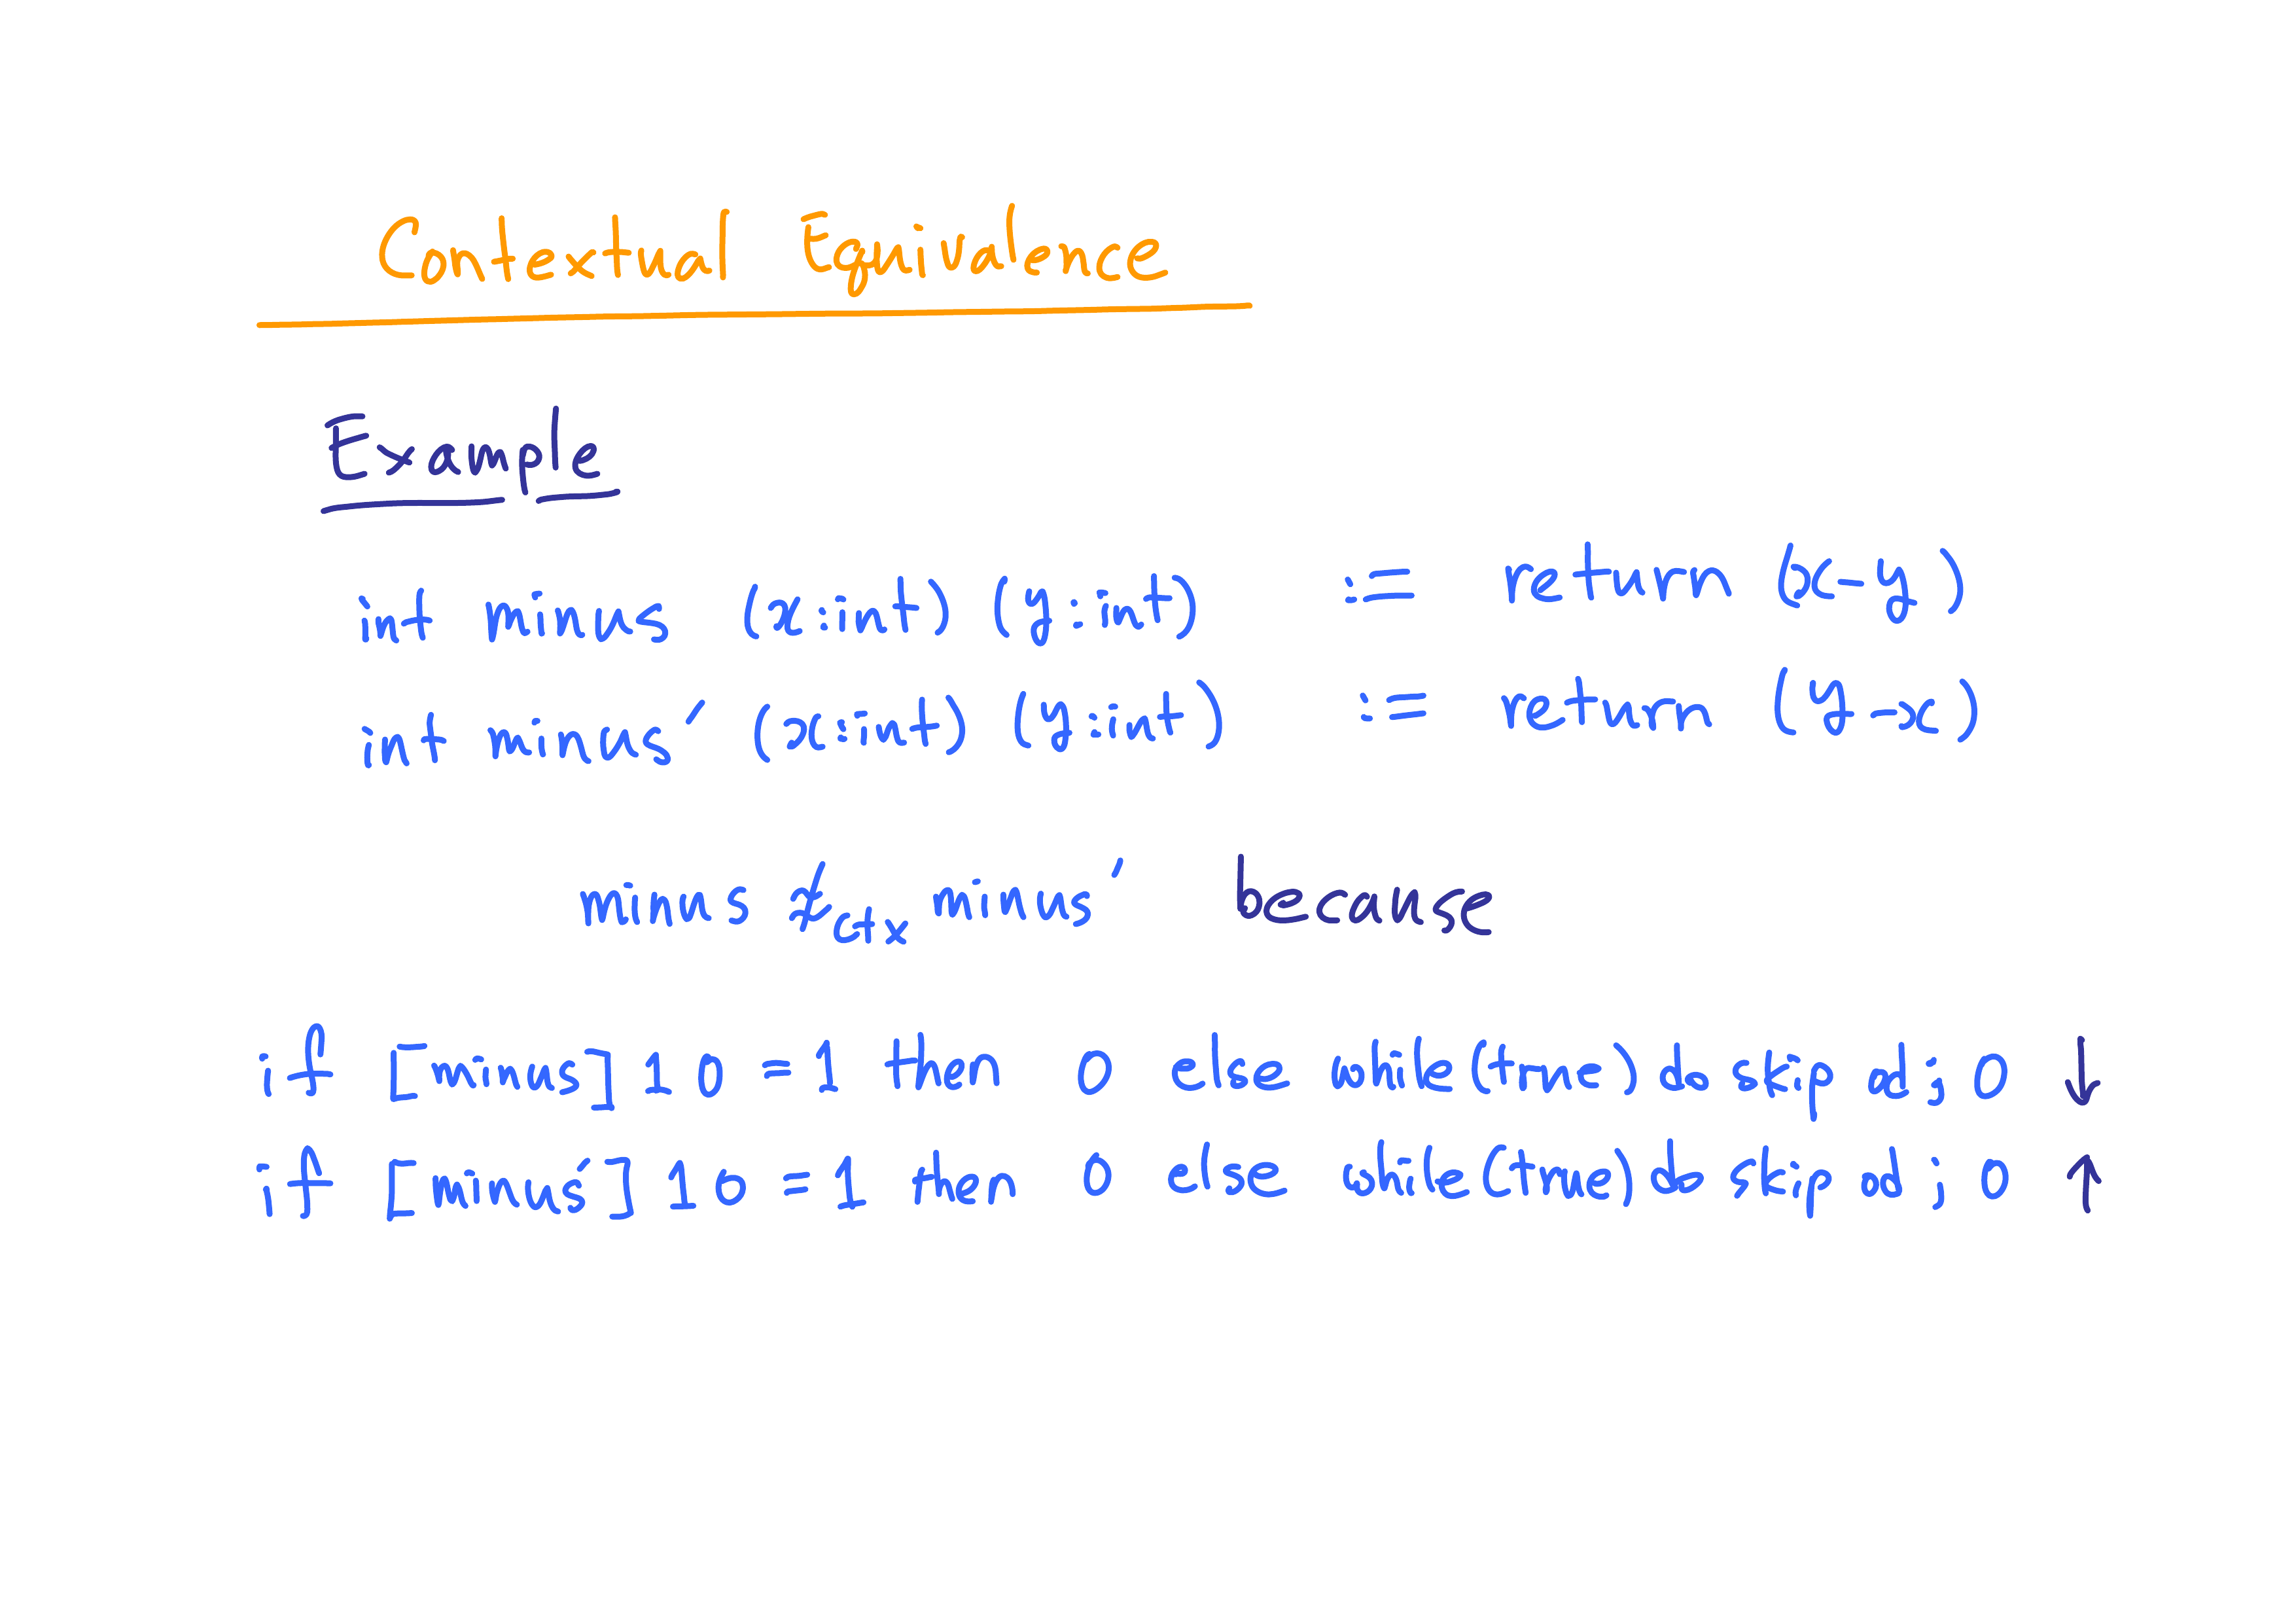 Contextual Equivalence
Example
int minus (x:int) (y:int) := return (x-y)
int minus' (x:int) (y:int) := return (y-x)
minus ≄ctx minus' because
if [minus] 1 0 = 1 then 0 else while(true) do skip od; 0 ↓
if [minus'] 1 0 = 1 then 0 else while(true) do skip od; 0 ↑